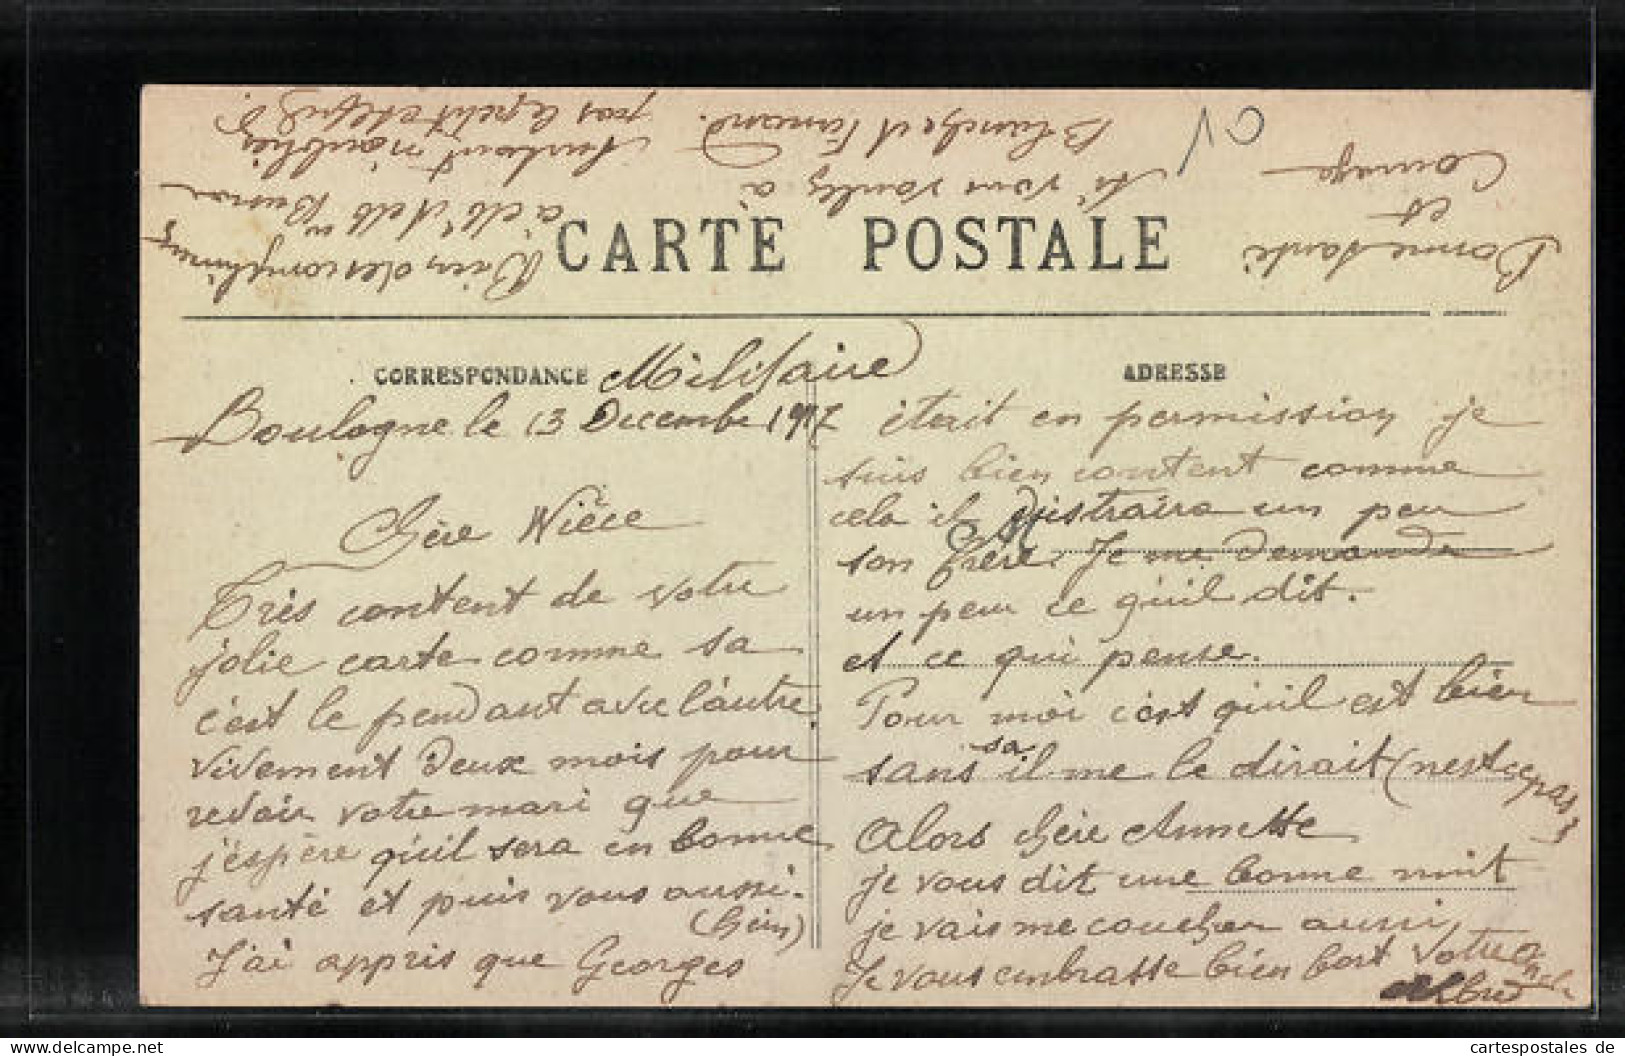 Bonne santé
et
Courage
Si vous voulez à
Blanche et Fernand.
Bien des compliments
à
Surtout n'oubliez
pas le petit
CARTE POSTALE
CORRESPONDANCE
Militaire
ADRESSE
Boulogne le 13 Decembre 1917
Chère Nièce
Très content de votre
jolie carte comme sa
c'est le pendant avec l'autre.
Vivement deux mois pour
revoir votre mari que
j'éspère qu'il sera en bonne
santé et puis vous aussi.
(hein)
J'ai appris que Georges
était en permission je
suis bien content comme
cela il distraira un peu
son frère. Je me demande
un peu ce qu'il dit.
et ce qui pense.
Pour moi c'est qu'il est bien
sans sa il me le dirait (nest ce pas)
Alors chère Annette
je vous dit une bonne nuit
je vais me coucher aussi
Je vous embrasse bien fort Votre Oncle
Albred
cartespostales de